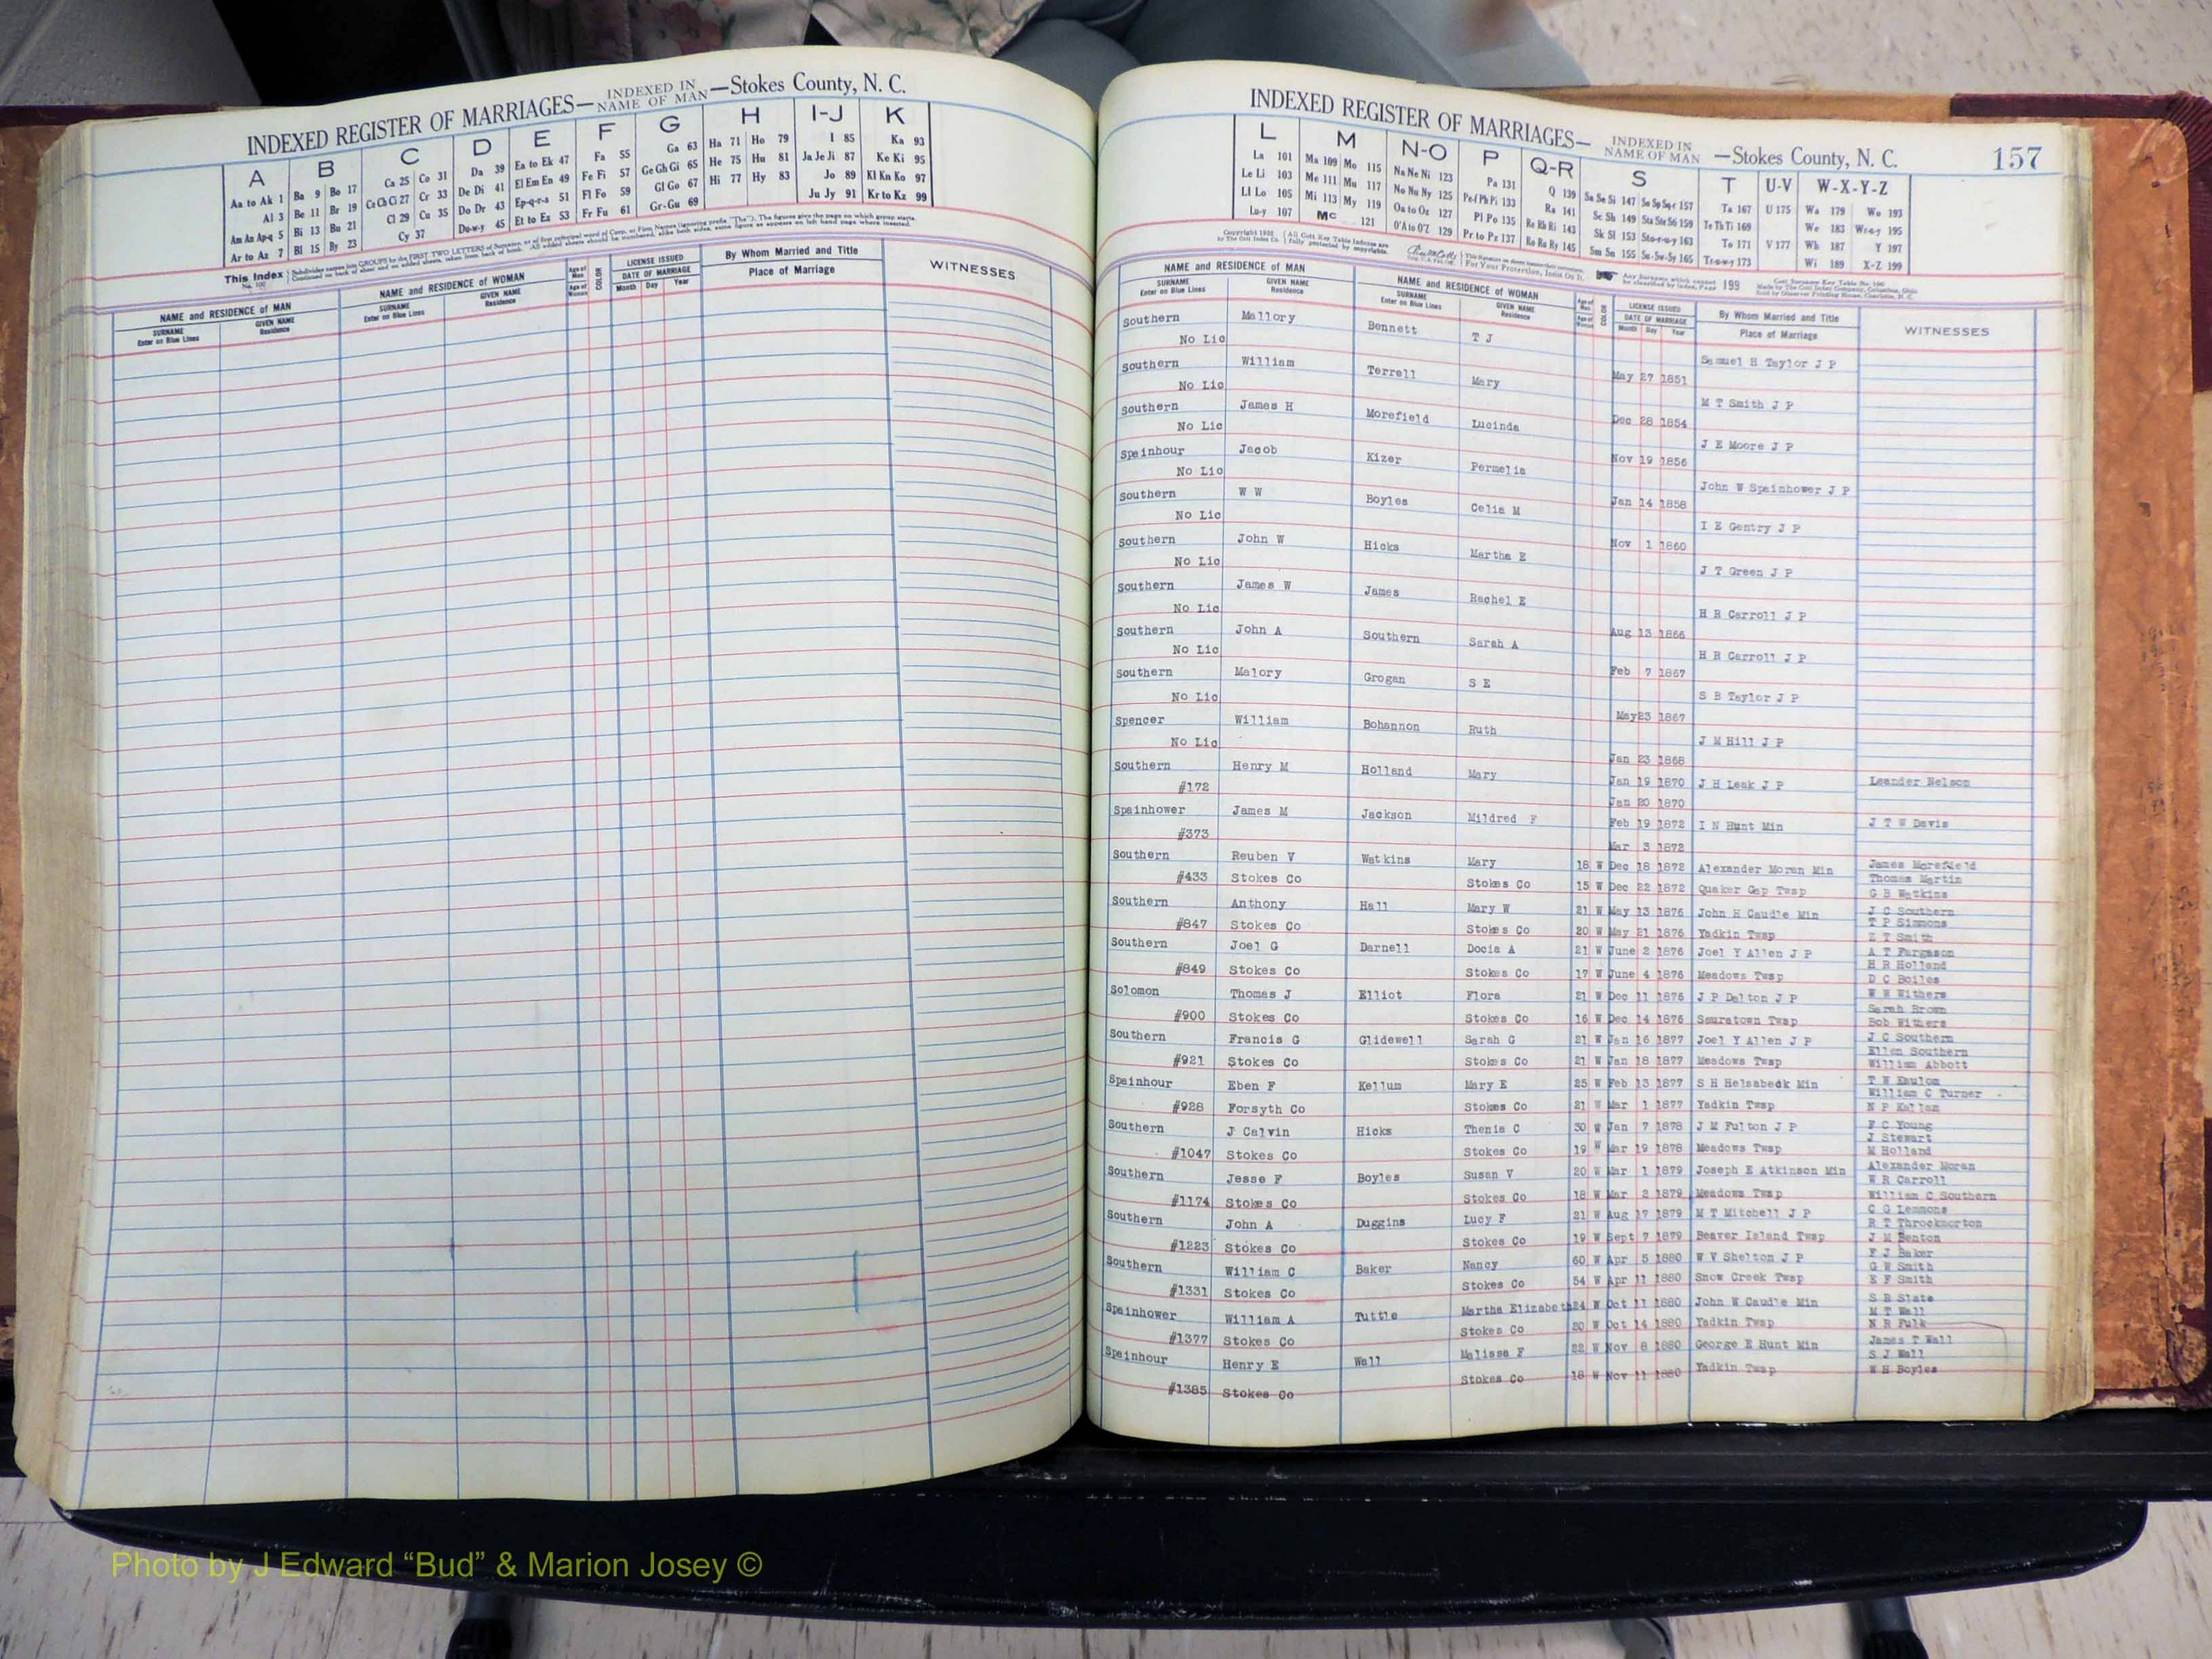 INDEXED REGISTER OF MARRIAGES— INDEXED IN NAME OF MAN —Stokes County, N. C.
A B C D E F G H I-J K
Aa to Ak 1 Ba 9 Bo 17 Ca 25 Co 31 Da 39 Ea to Ek 47 Fa 55 Ga 63 Ha 71 Ho 79 I 85 Ka 93
Al 3 Be 11 Br 19 Ce Ch Ci 27 Cr 33 De Di 41 El Em En 49 Fe Fi 57 Ge Gh Gi 65 He 75 Hu 81 Ja Je Ji 87 Ke Ki 95
Am An Ap-q 5 Bi 13 Bu 21 Cl 29 Cu 35 Do Dr 43 Ep-q-r-s 51 Fl Fo 59 Gl Go 67 Hi 77 Hy 83 Jo 89 Kl Kn Ko 97
Ar to Az 7 Bl 15 By 23 Cy 37 Du-w-y 45 Et to Ez 53 Fr Fu 61 Gr-Gu 69 Ju Jy 91 Kr to Kz 99
This Index
NAME and RESIDENCE of MAN NAME and RESIDENCE of WOMAN Age of Man Age of Woman COLOR LICENSE ISSUED DATE OF MARRIAGE By Whom Married and Title WITNESSES
SURNAME Enter on Blue Lines GIVEN NAME Residence SURNAME Enter on Blue Lines GIVEN NAME Residence Month Day Year Place of Marriage
INDEXED REGISTER OF MARRIAGES— INDEXED IN NAME OF MAN —Stokes County, N. C. 157
L M N-O P Q-R S T U-V W-X-Y-Z
La 101 Ma 109 Mo 115 Na Ne Ni 123 Pa 131 Q 139 Sa Se Si 147 So Sp Sq-r 157 Ta 167 U 175 Wa 179 Wo 193
Le Li 103 Me 111 Mu 117 No Nu Ny 125 Pe-f Ph Pi 133 Ra 141 Sc Sh 149 Sta Ste Sti 159 Te Th Ti 169 We 183 Wr-u-y 195
Ll Lo 105 Mi 113 My 119 Oa to Oz 127 Pl Po 135 Re Rh Ri 143 Sk Sl 153 Sto-r-u-y 163 To 171 V 177 Wh 187 Y 197
Lu-y 107 Mc 121 O'A to O'Z 129 Pr to Pz 137 Ro Ru Ry 145 Sm Sn 155 Su-Sw-Sy 165 Tr-u-w-y 173 Wi 189 X-Z 199
NAME and RESIDENCE OF MAN NAME and RESIDENCE OF WOMAN Age of Man Age of Woman COLOR LICENSE ISSUED DATE OF MARRIAGE By Whom Married and Title WITNESSES
SURNAME Enter on Blue Lines GIVEN NAME Residence SURNAME Enter on Blue Lines GIVEN NAME Residence Month Day Year Place of Marriage
Southern Mallory Bennett T J Samuel H Taylor J P
No Lic May 27 1851
Southern William Terrell Mary M T Smith J P
No Lic Dec 28 1854
Southern James H Morefield Lucinda J E Moore J P
No Lic Nov 19 1856
Spainhour Jacob Kizer Permelia John W Spainhower J P
No Lic Jan 14 1858
Southern W W Boyles Celia M I E Gentry J P
No Lic Nov 1 1860
Southern John W Hicks Martha E J T Green J P
No Lic
Southern James W James Rachel E H R Carroll J P
No Lic Aug 13 1866
Southern John A Southern Sarah A H R Carroll J P
No Lic Feb 7 1867
Southern Malory Grogan S E S B Taylor J P
No Lic May23 1867
Spencer William Bohannon Ruth J M Hill J P
No Lic Jan 23 1868
Southern Henry M Holland Mary Jan 19 1870 J H Leak J P Leander Nelson
#172 Jan 20 1870
Spainhower James M Jackson Mildred F Feb 19 1872 I N Hunt Min J T W Davis
#373 Mar 3 1872
Southern Reuben V Watkins Mary 18 W Dec 18 1872 Alexander Moran Min James Morefield
Thomas Martin
#433 Stokes Co Stokes Co 15 W Dec 22 1872 Quaker Gap Twsp G B Watkins
Southern Anthony Hall Mary W 21 W May 13 1876 John H Caudle Min J C Southern
T P Simmons
#847 Stokes Co Stokes Co 20 W May 21 1876 Yadkin Twsp Z T Smith
Southern Joel G Darnell Docia A 21 W June 2 1876 Joel Y Allen J P A T Fargason
H R Holland
#849 Stokes Co Stokes Co 17 W June 4 1876 Meadows Twsp D C Boiles
Solomon Thomas J Elliot Flora 21 W Dec 11 1876 J P Dalton J P W W Withers
Sarah Brown
#900 Stokes Co Stokes Co 16 W Dec 14 1876 Sauratown Twsp Bob Withers
Southern Francis G Glidewell Sarah G 21 W Jan 16 1877 Joel Y Allen J P J C Southern
Ellen Southern
#921 Stokes Co Stokes Co 21 W Jan 18 1877 Meadows Twsp William Abbott
Spainhour Eben F Kellum Mary E 25 W Feb 13 1877 S H Helsabeck Min
William C Turner
#928 Forsyth Co Stokes Co 21 W Mar 1 1877 Yadkin Twsp N P Kallam
Southern J Calvin Hicks Thenia C 30 W Jan 7 1878 J M Fulton J P F C Young
J Stewart
#1047 Stokes Co Stokes Co 19 W Mar 19 1878 Meadows Twsp M Holland
Southern Jesse F Boyles Susan V 20 W Mar 1 1879 Joseph E Atkinson Min Alexander Moran
W R Carroll
#1174 Stokes Co Stokes Co 18 W Mar 2 1879 Meadows Twsp William C Southern
Southern John A Duggins Lucy F 21 W Aug 17 1879 M T Mitchell J P C G Lemmons
R T Throckmorton
#1223 Stokes Co Stokes Co 19 W Sept 7 1879 Beaver Island Twsp J M Benton
Southern William C Baker Nancy 60 W Apr 5 1880 W V Shelton J P F J Baker
G W Smith
#1331 Stokes Co Stokes Co 54 W Apr 11 1880 Snow Creek Twsp E F Smith
Spainhower William A Tuttle Martha Elizabeth 24 W Oct 11 1880 John W Caudle Min S B Slate
M T Wall
#1377 Stokes Co Stokes Co 20 W Oct 14 1880 Yadkin Twsp N R Fulk
Spainhour Henry E Wall Malissa F 22 W Nov 8 1880 George E Hunt Min James T Wall
S J Wall
#1385 Stokes Co Stokes Co 18 W Nov 11 1880 Yadkin Twsp W H Boyles
Photo by J Edward “Bud” & Marion Josey ©